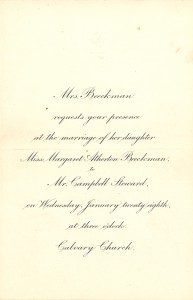 Mrs Beeckman
requests your presence
at the marriage of her daughter
Miss Margaret Atherton Beeckman,
to
Mr. Campbell Steward,
on Wednesday, January twenty eighth,
at three o'clock.
Calvary Church.